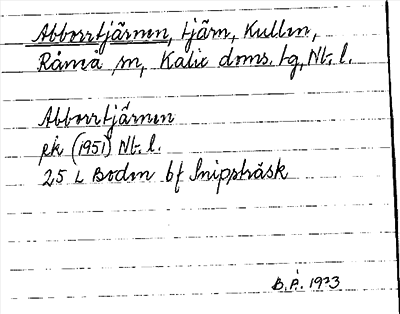 Abborrtjärnen, tjärn, Kullen,
Råneå sn, Kalix doms. tg, Nb. l.
Abborrtjärnen
ek (1951) Nb. l.
25 L Boden bf Snippträsk
B.P. 1973